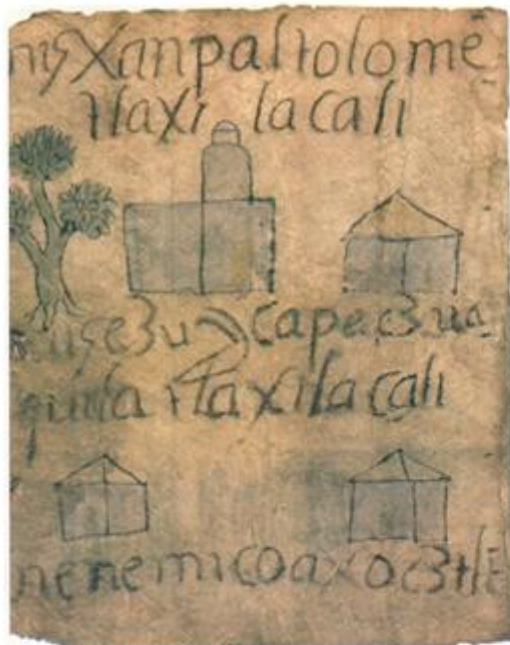 nis xanpaltolome
tlaxi lacali
capec
quila tlaxilacali
nenemi coaxoc3tle